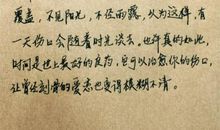 覆盖,不见阳光,不经雨露,以为这样,有
一天伤口会随着时光淡去。也许真的如此,
时间是世上最好的良药,它可以治愈你的伤口,
让曾经刻骨的爱恋也变得模糊不清。